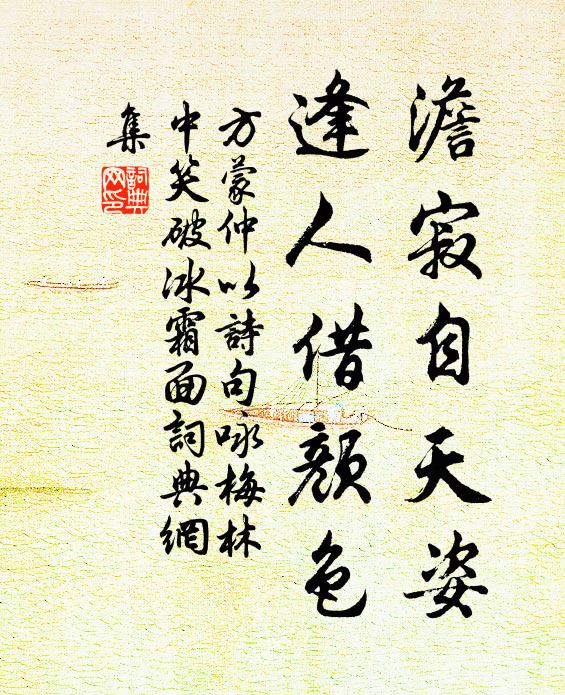 澹寂自天姿
逢人借顏色
方蒙仲以詩句咏梅林
中笑破冰霜面詞典網
集
詞典
网印